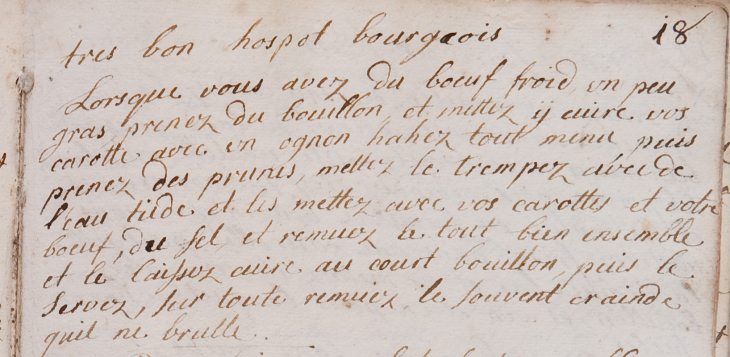 18
tres bon hospot bourgeois
Lorsque vous avez du boeuf froid un peu
gras prenez du bouillon et mettez ÿ cuire vos
carotte avec un ognon hahez tout menu puis
prenez des prunes, mettez le trempez avec de
l'eau tiide et les mettez avec vos carottes et votre
boeuf, du sel et remuez le tout bien ensemble
et le laissez cuire au court bouillon, puis le
servez, sur toute remuez le souvent crainde
quil ne brulle.